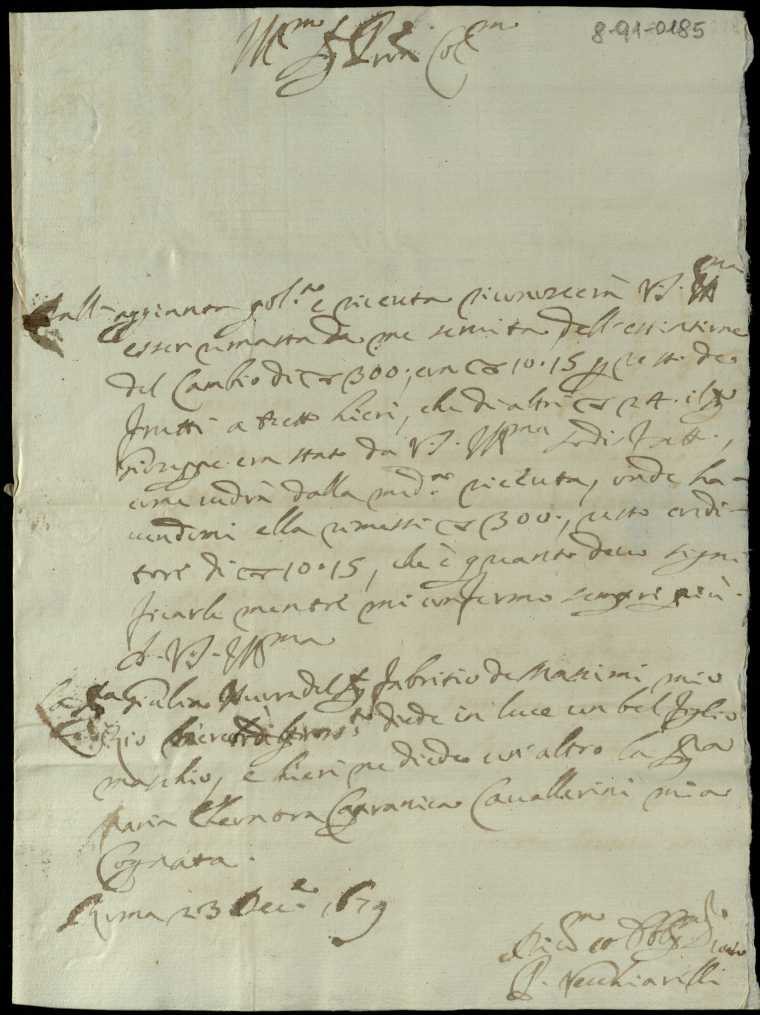 8-91-0185
Ill.mo Sig. Pron Col.mo
Dall'aggiunta pol.a e riceuta riconoscerà V.S. Ill.ma
esser rimasta da me servita dell'estintione
del Cambio di ▽ 300; con ▽ 10.15 p resto de
frutti a tutto hieri, che di altri ▽ 24. il Sig.
Giuseppe era stato da V.S. Ill.ma sodisfatt.,
come vedrà dalla med.a riceuta, onde ha-
vendomi ella rimessi ▽ 300., resto credi-
tore di ▽ 10.15, che è quanto devo signi
ficarle mentre mi confermo sempre più.
di V.S. Ill.ma
La Sig.ra Giulia Nuora del Sig. Fabritio de Massimi mio
Zio diede in luce un bel figlio
maschio, e hieri ne diede un altro la Sig.ra
Maria Eleonora Capranica Cavallerini mia
Cognata.
Roma 23 Dec.e 1679
P. Vecchiarelli